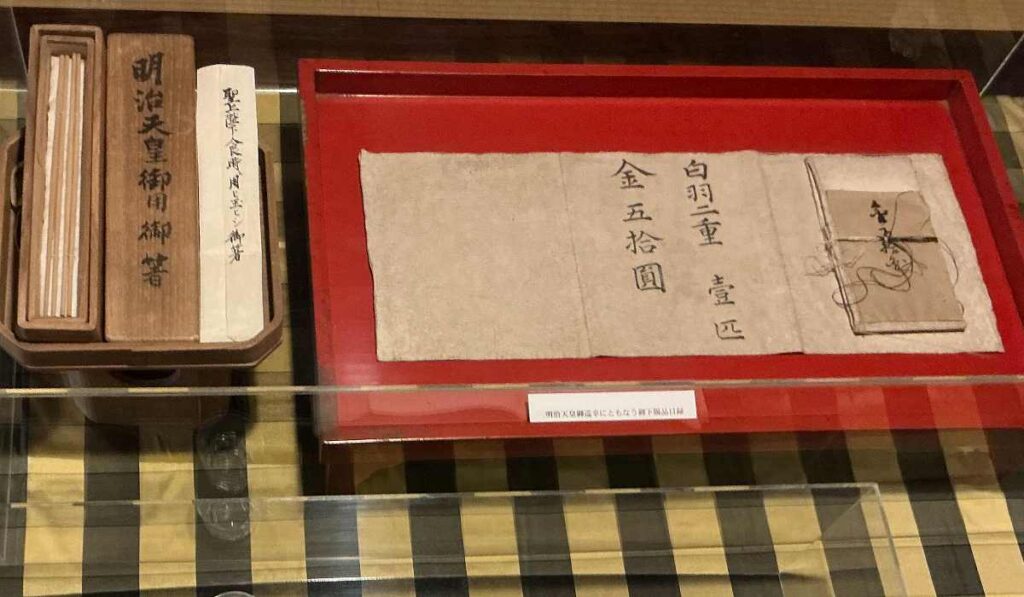 明治天皇御用御箸
聖上陛下食時用ヒ玉ヒシ御箸
白羽二重 壹匹
金五拾圓
明治天皇御巡幸にともなう御下賜品目録